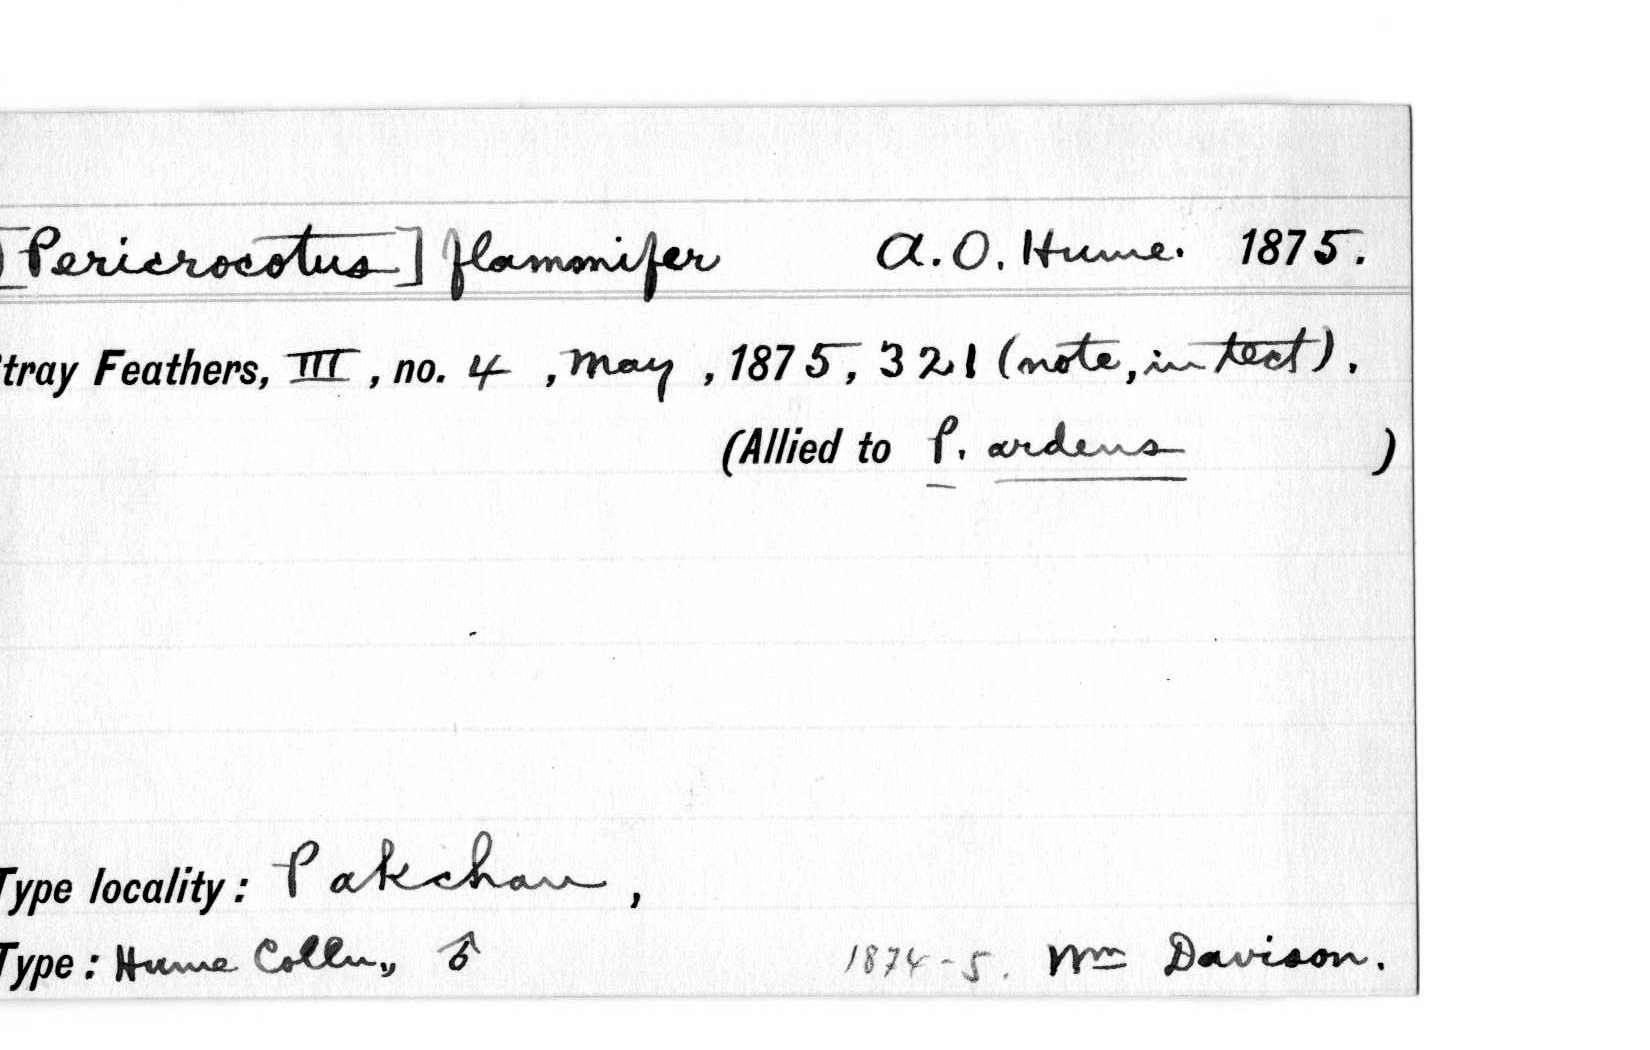 [Pericrocotus] flammifer A. O. Hume. 1875.
tray Feathers, III, no. 4, May, 1875, 321 (note, in text).
(Allied to P. ardens )
Type locality: Pakchan,
Type: Hume Colln., ♂ 1874-5. Wm Davison.